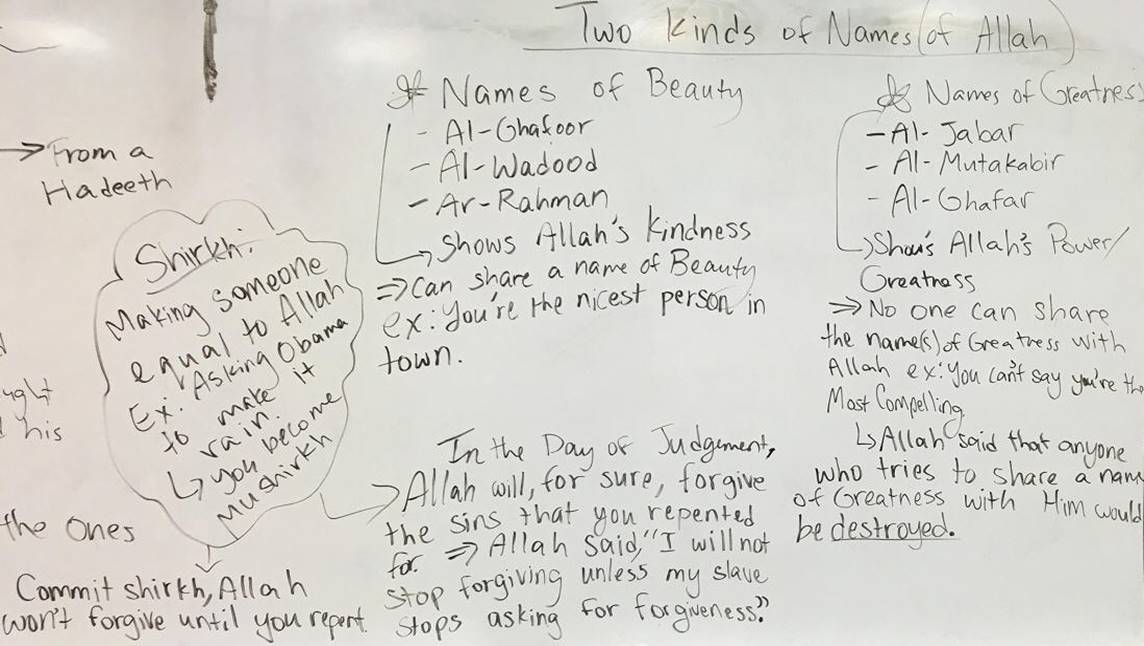 Two Kinds of Names (of Allah)
* Names of Beauty
- Al-Ghafoor
- Al-Wadood
- Ar-Rahman
↳ Shows Allah's kindness
⇒ Can share a name of Beauty
ex: You're the nicest person in
town.
* Names of Greatness
- Al-Jabar
- Al-Mutakabir
- Al-Ghafar
↳ Shows Allah's Power/
Greatness
⇒ No one can share
the name(s) of Greatness with
Allah ex: You can't say you're the
Most Compelling
↳ Allah said that anyone
who tries to share a name
of Greatness with Him would
be destroyed.
→ From a
Hadeeth
Shirkh:
Making someone
equal to Allah
Ex: Asking Obama
to make it
rain.
↳ you become
Mushirkh
his
the Ones
Commit shirkh, Allah
won't forgive until you repent.
In the Day of Judgement,
Allah will, for sure, forgive
the sins that you repented
for. ⇒ Allah said, "I will not
stop forgiving unless my slave
stops asking for forgiveness."